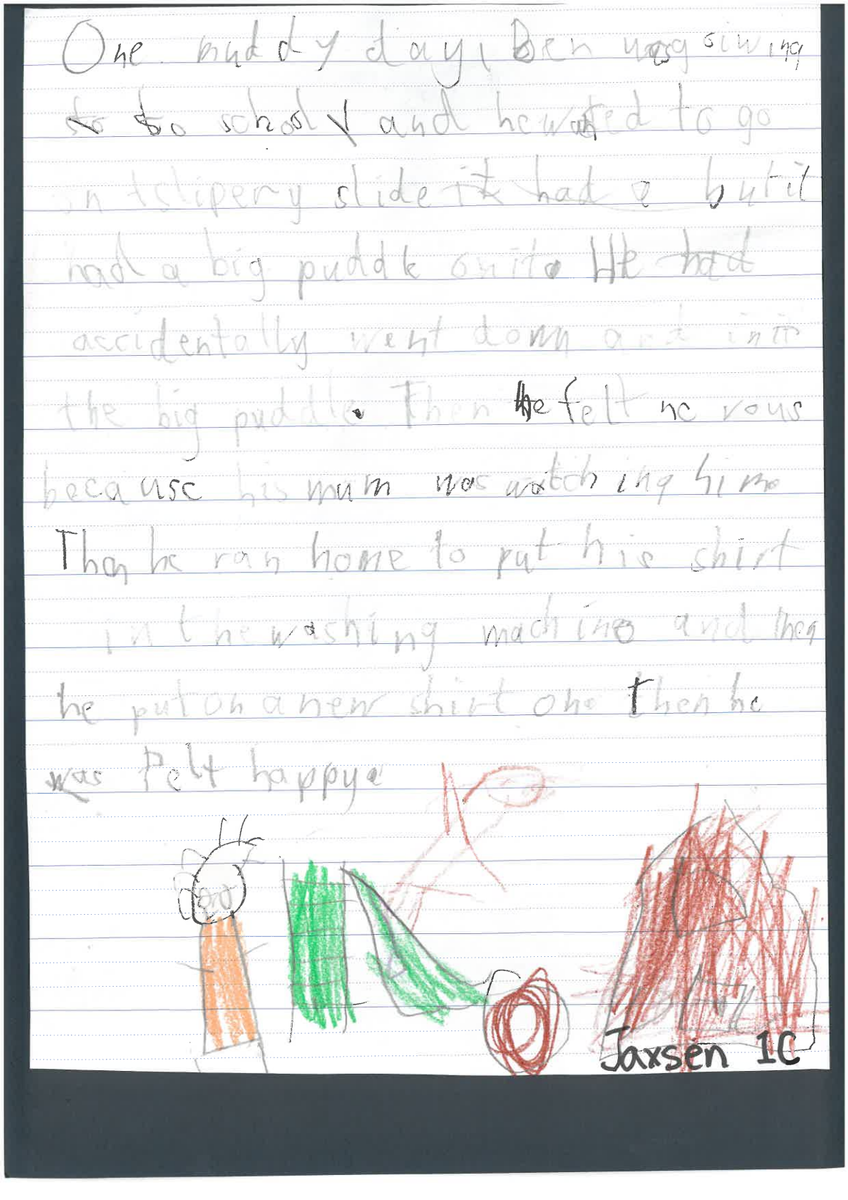 One muddy day, Ben was
to school and he wanted to go
slipery slide it had a but it
had a big puddle onit. He had
accidentally went down and into
the big puddle. Then He felt nervous
because his mum was watching him.
Then he ran home to put his shirt
in the washing machine and then
he put on a new shirt one Then he
was Felt happy.
Jaxsen 1C